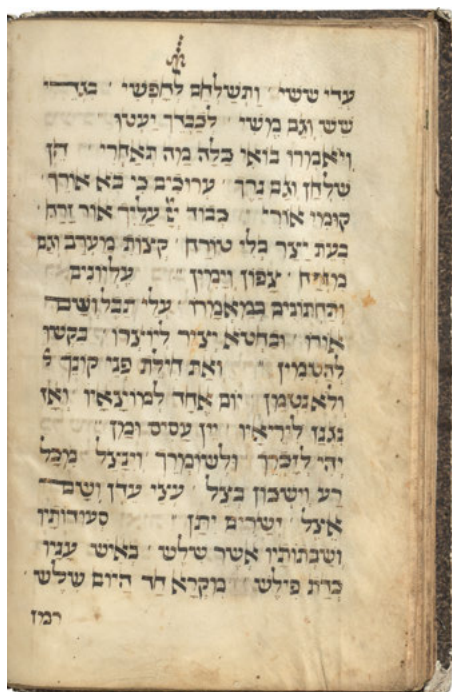 עדי ששי וְתשלחם לחפשי בגדי
שש וגם משי לכבדך יעטו
ויאמרו בואי כלה מה תאחרי הן
שלחן וגם נרך ערוכים כי בא אורך
קומי אורי כבוד עליך אור זרח
בעת יצר בלי טורח קצות מערב וגם
מזרח צפון וימין עליונים
ותחתונים במאמרו עלי תבל
אורו ובחטא יציר ליוצרו בקשו
להטמין ואת חילת פני קונך
ולא נטמן יום אחד למוצאיו ואז
נגנז ליריאיו יין עסיס ומן
יהי לזכרך ולשומרך וינצל מכל
רע וישכון בצל עצי עדן ושם
אצל ישרים יתן סעודותיו
ושבתותיו אשר שלש באיש עניו
כדת פילש מקרא זה היום שלש
רמז